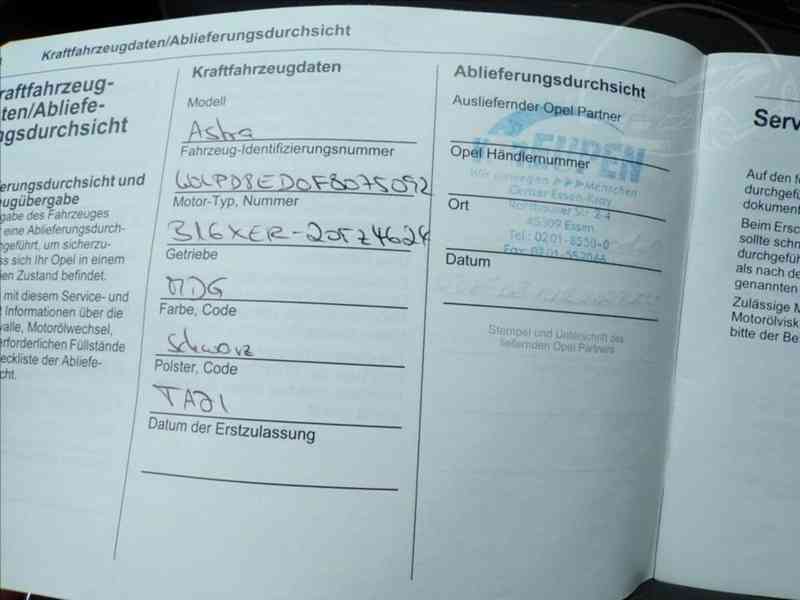 Kraftfahrzeugdaten/Ablieferungsdurchsicht
raftfahrzeug-
ten/Abliefe-
ngsdurchsicht
erungsdurchsicht und
eugübergabe
gabe des Fahrzeuges
eine Ablieferungsdurch-
ngeführt, um sicherzu-
ss sich Ihr Opel in einem
en Zustand befindet.
mit diesem Service- und
Informationen über die
valle, Motorölwechsel,
erforderlichen Füllstände
eckliste der Abliefe-
cht.
Kraftfahrzeugdaten
Modell
Astra
Fahrzeug-Identifizierungsnummer
W0LPD8ED0F8075092
Motor-Typ, Nummer
B16XER-20TZ4624
Getriebe
MDG
Farbe, Code
Schwarz
Polster, Code
TAJ1
Datum der Erstzulassung
Ablieferungsdurchsicht
Ausliefernder Opel Partner
Opel Händlernummer
Wir bewegen Menschen
Center Essen-Kray
Ort
45309 Essen
Tel.: 0201-8550-0
Datum
Stempel und Unterschrift des
liefernden Opel Partners
Serv
Auf den f
durchgefü
dokument
Beim Ersc
sollte schn
durchgefüh
als nach de
genannten
Zulässige M
Motorölvisk
bitte der Be